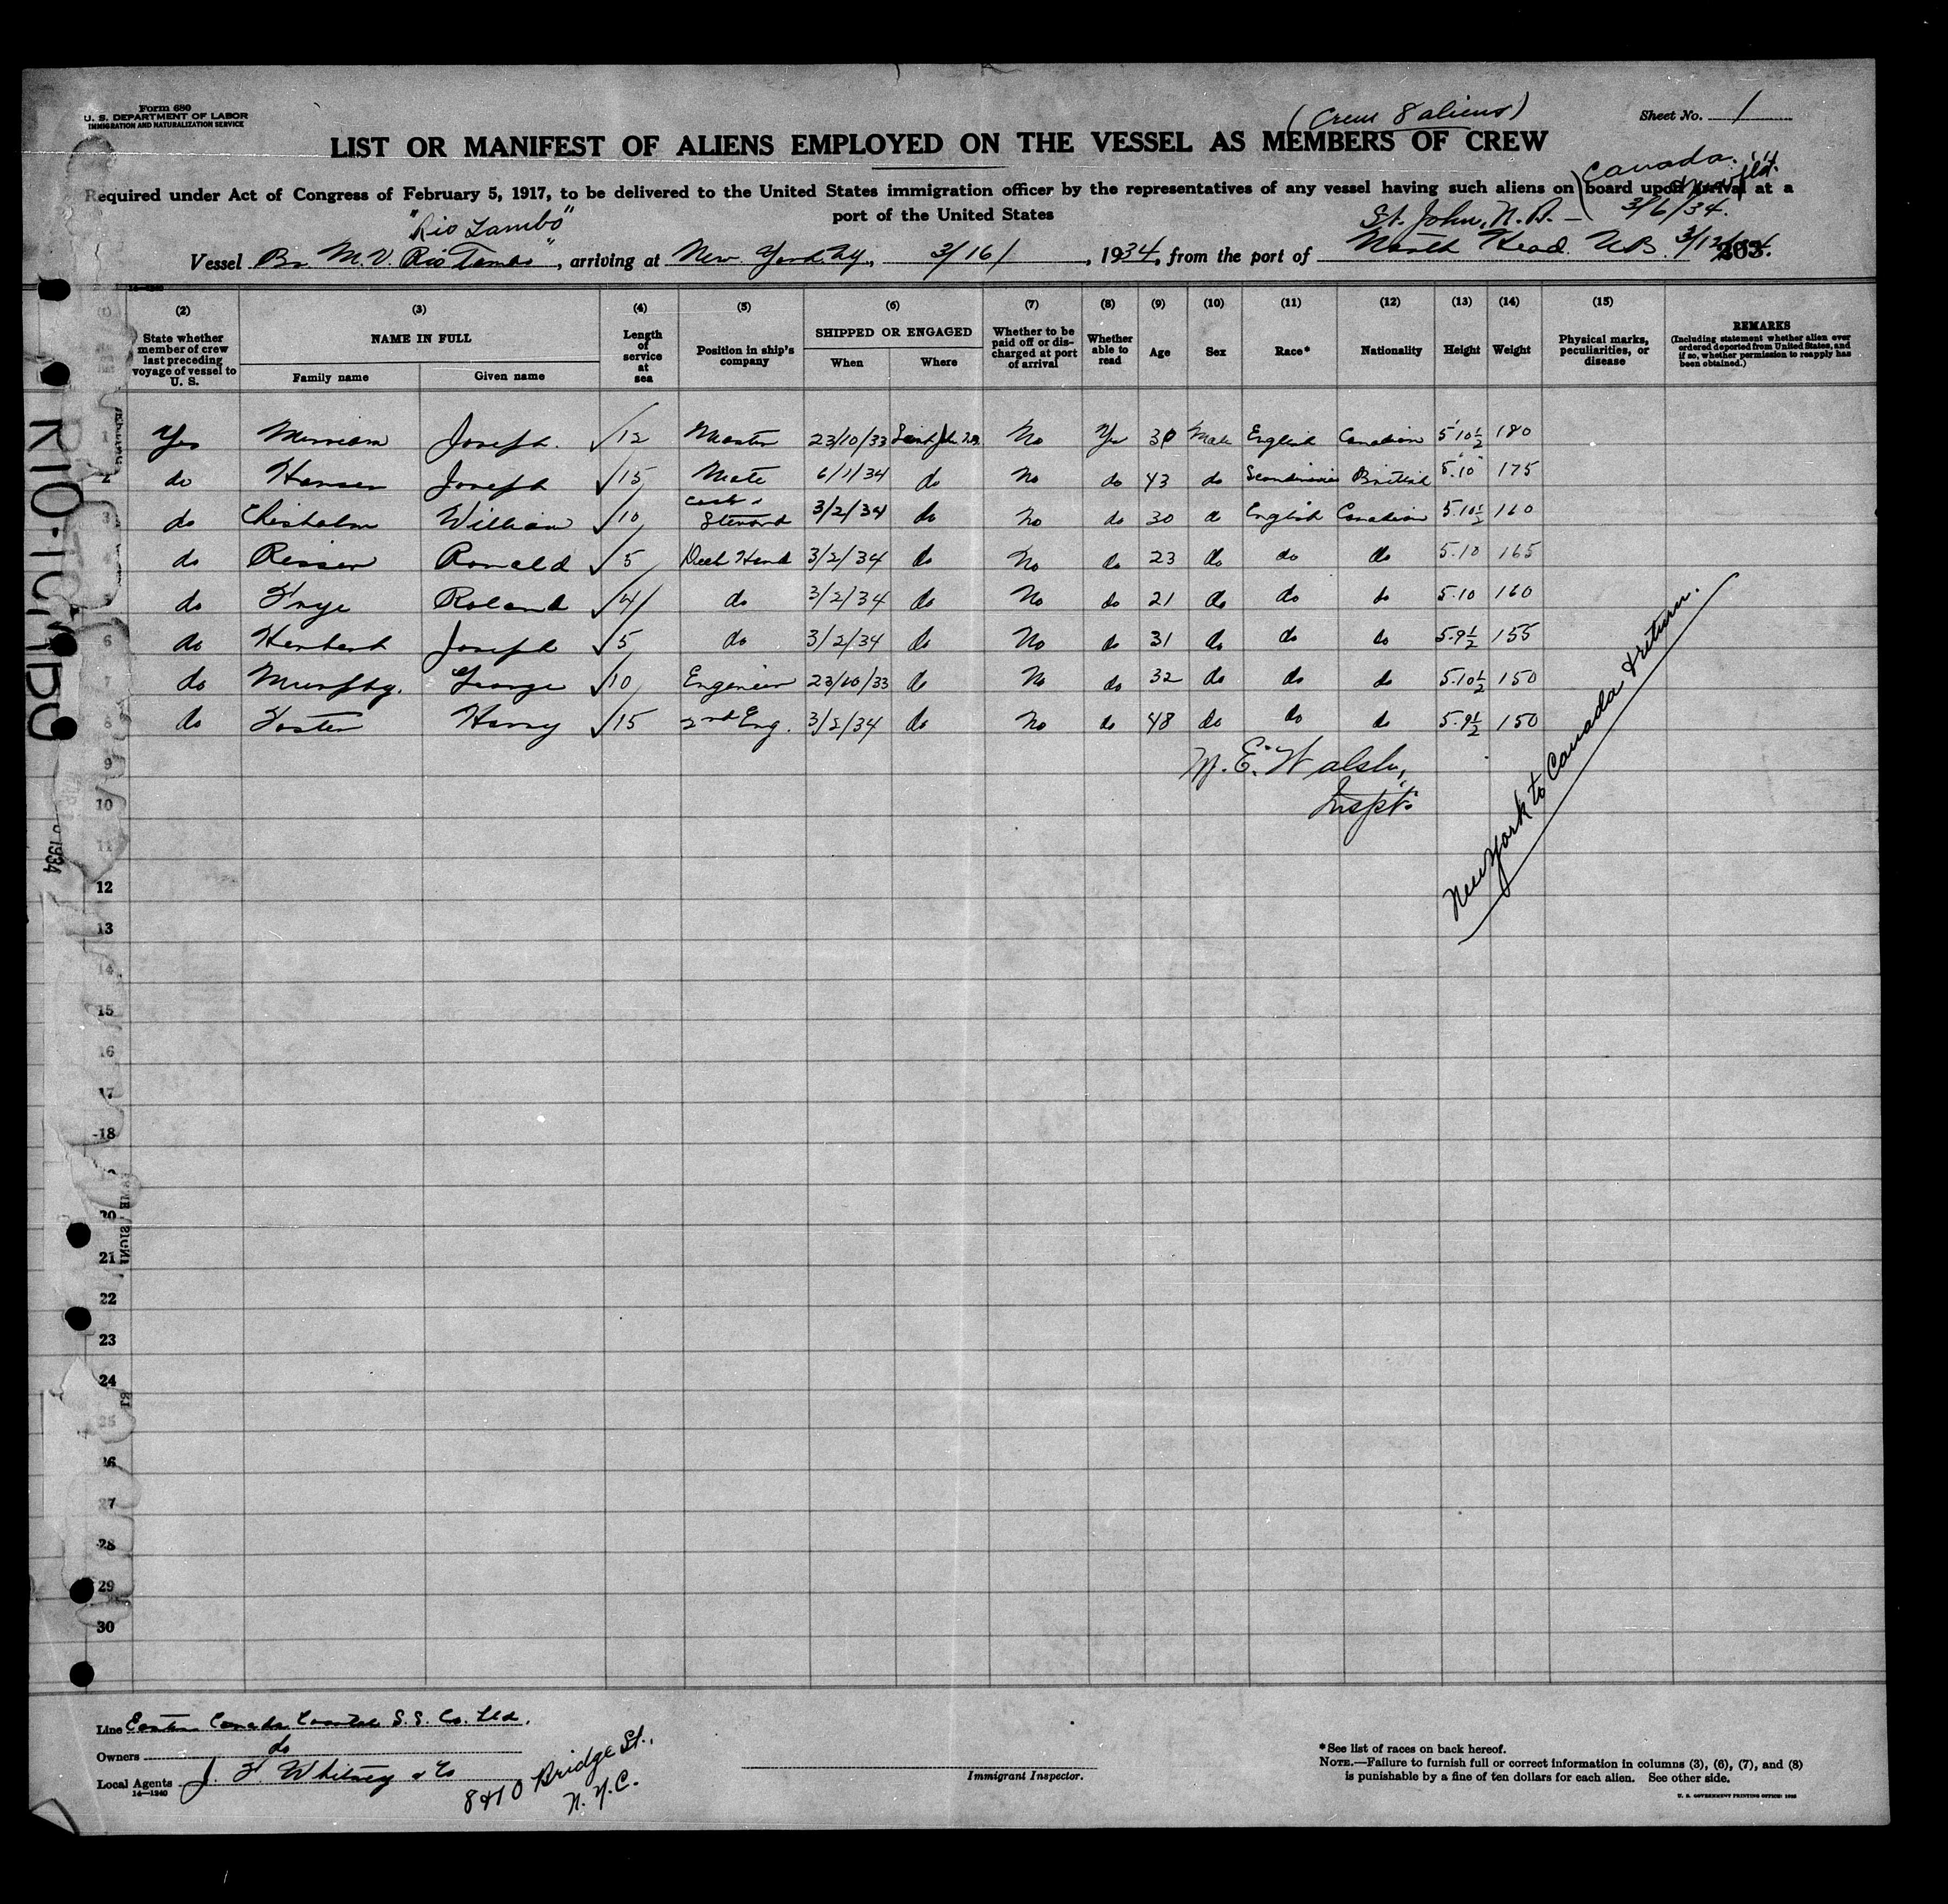 Form 680
U. S. DEPARTMENT OF LABOR
IMMIGRATION AND NATURALIZATION SERVICE
(Crew 8 aliens)
Sheet No. 1
LIST OR MANIFEST OF ALIENS EMPLOYED ON THE VESSEL AS MEMBERS OF CREW
Canada
Required under Act of Congress of February 5, 1917, to be delivered to the United States immigration officer by the representatives of any vessel having such aliens on board upon arrival at a
port of the United States
"Rio Tambo"
St. John, N.B. - 3/6/34.
Vessel Br. M.V. Rio Tambo, arriving at New York NY, 3/16/, 1934, from the port of North Head N.B. 3/12/
203.
(2) (3) (4) (5) (6) (7) (8) (9) (10) (11) (12) (13) (14) (15)
State whether member of crew last preceding voyage of vessel to U. S. NAME IN FULL Family name Given name Length of service at sea Position in ship's company SHIPPED OR ENGAGED When Where Whether to be paid off or discharged at port of arrival Whether able to read Age Sex Race* Nationality Height Weight Physical marks, peculiarities, or disease REMARKS (Including statement whether alien ever ordered deported from United States, and if so, whether permission to reapply has been obtained.)
1 Yes Merriam Joseph. 12 Master 23/10/33 Saint John N.B. No Yes 30 Male English Canadian 5'10½ 180
2 do Hansen Joseph 15 Mate 6/1/34 do No do 43 do Scandinavian British 5.10 175
3 do Chisholm William 10 Cook & Steward 3/2/34 do No do 30 do English Canadian 5.10½ 160
4 do Risser Ronald 5 Deck Hand 3/2/34 do No do 23 do do do 5.10 165
5 do Frye Roland 4 do 3/2/34 do No do 21 do do do 5.10 160
6 do Herbert Joseph 5 do 3/2/34 do No do 31 do do do 5.9½ 155
7 do Murphy. George 10 Engineer 23/10/33 do No do 32 do do do 5.10½ 150
8 do Foster Harry 15 2nd Eng. 3/2/34 do No do 48 do do do 5.9½ 150
9
M. E. Walsh,
Inspt.
10
11
New York to Canada & return.
12
13
14
15
16
17
18
20
21
22
23
24
25
26
27
28
29
30
1934
Line Eastern Canada Coastal S.S. Co. Ltd.
Owners do
Local Agents J. F. Whitney & Co
14—1240
8 & 10 Bridge St.,
N.Y.C.
Immigrant Inspector.
*See list of races on back hereof.
NOTE.—Failure to furnish full or correct information in columns (3), (6), (7), and (8)
is punishable by a fine of ten dollars for each alien. See other side.
U. S. GOVERNMENT PRINTING OFFICE: 1933